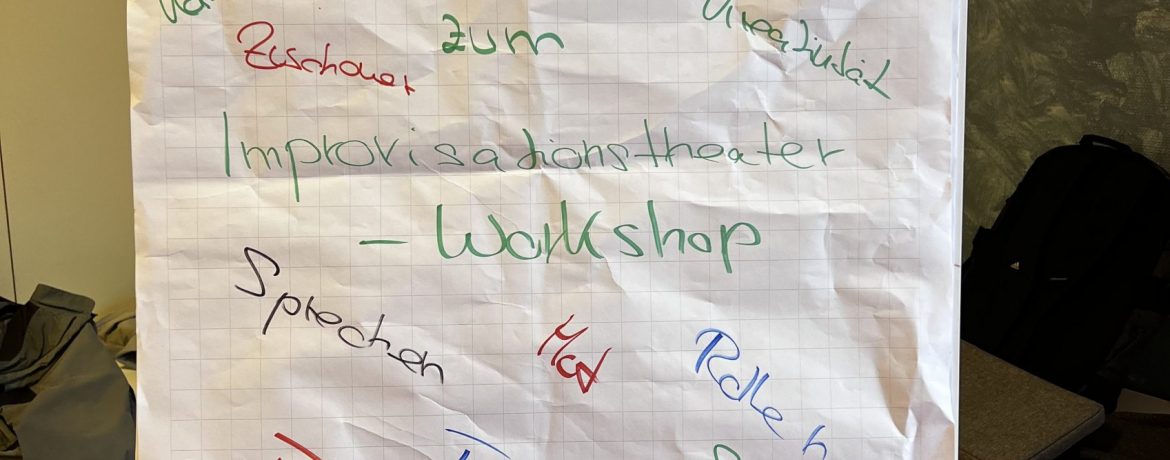 Zuschauer
zum
Kreativität
Improvisationstheater
- Workshop
Sprechen
Mut
Rollen